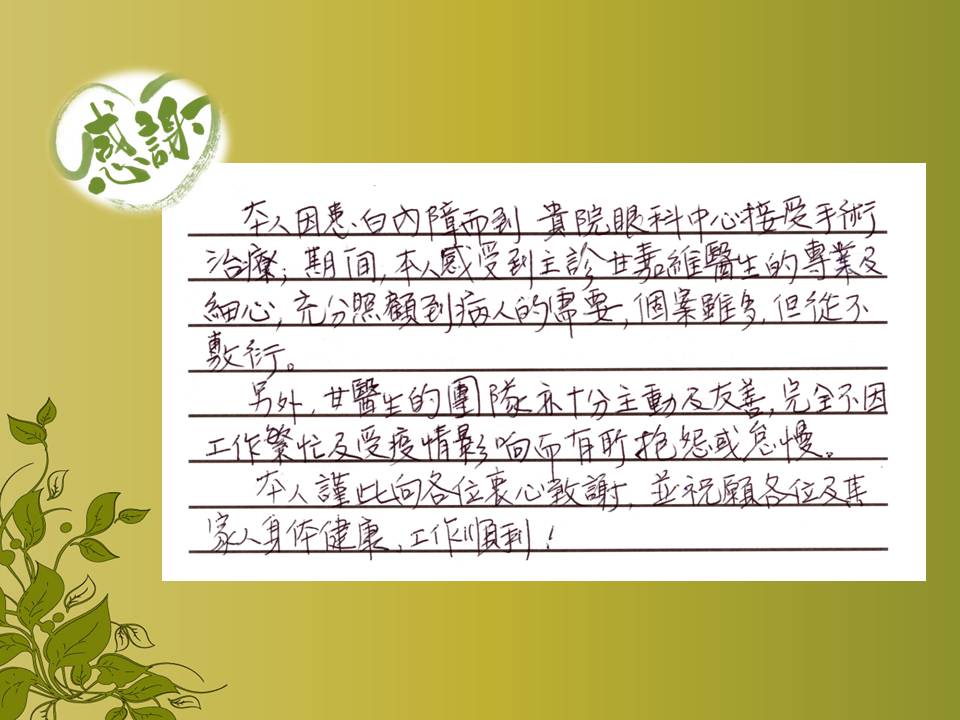 感謝
本人因患白內障而到 貴院眼科中心接受手術
治療；期间，本人感受到主診甘嘉維醫生的專業及
細心，充分照顧到病人的需要，個案雖多，但從不
敷衍。
另外，甘醫生的團隊亦十分主動及友善，完全不因
工作繁忙及受疫情影响而有所抱怨或怠慢。
本人謹此向各位衷心致謝，並祝願各位及其
家人身体健康，工作順利！